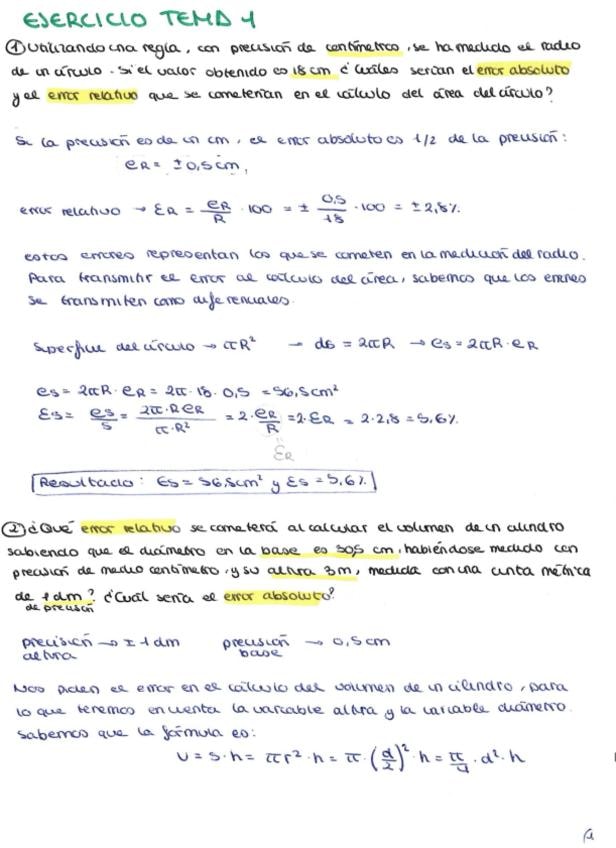 EJERCICIO TEMA 1
① Utilizando una regla, con precisión de centímetros, se ha medido el radio
de un círculo. Si el valor obtenido es 18 cm ¿Cuáles serían el error absoluto
y el error relativo que se cometerían en el cálculo del área del círculo?
Si la precisión es de un cm, el error absoluto es 1/2 de la precisión:
eR = ±0,5cm,
error relativo → ƐR = eR/R · 100 = ± 0,5/18 · 100 = ± 2,8%
estos errores representan los que se cometen en la medición del radio.
Para transmitir el error al cálculo del área, sabemos que los errores
se transmiten como diferenciales.
Superficie del círculo → πR² → ds = 2πR → es = 2πR · eR
es = 2πR · eR = 2π · 18 · 0,5 = 56,5cm²
Ɛs = es/s = 2π·ReR/π·R² = 2· eR/R = 2·ƐR = 2·2,8 = 5,6%
=
ƐR
Resultado: Es = 56,5cm² y Ɛs = 5,6%
② ¿Qué error relativo se cometerá al calcular el volumen de un cilindro
sabiendo que el diámetro en la base es 30,5 cm, habiéndose medido con
precisión de medio centímetro, y su altura 3m, medida con una cinta métrica
de 1 dm? ¿Cuál sería el error absoluto?
de precisión
precisión → ± 1 dm precisión → 0,5cm
altura base
Nos piden el error en el cálculo del volumen de un cilindro, para
lo que tenemos en cuenta la variable altura y la variable diámetro.
Sabemos que la fórmula es:
V = S·h = πr²·h = π·(d/2)²·h = π/4·d²·h